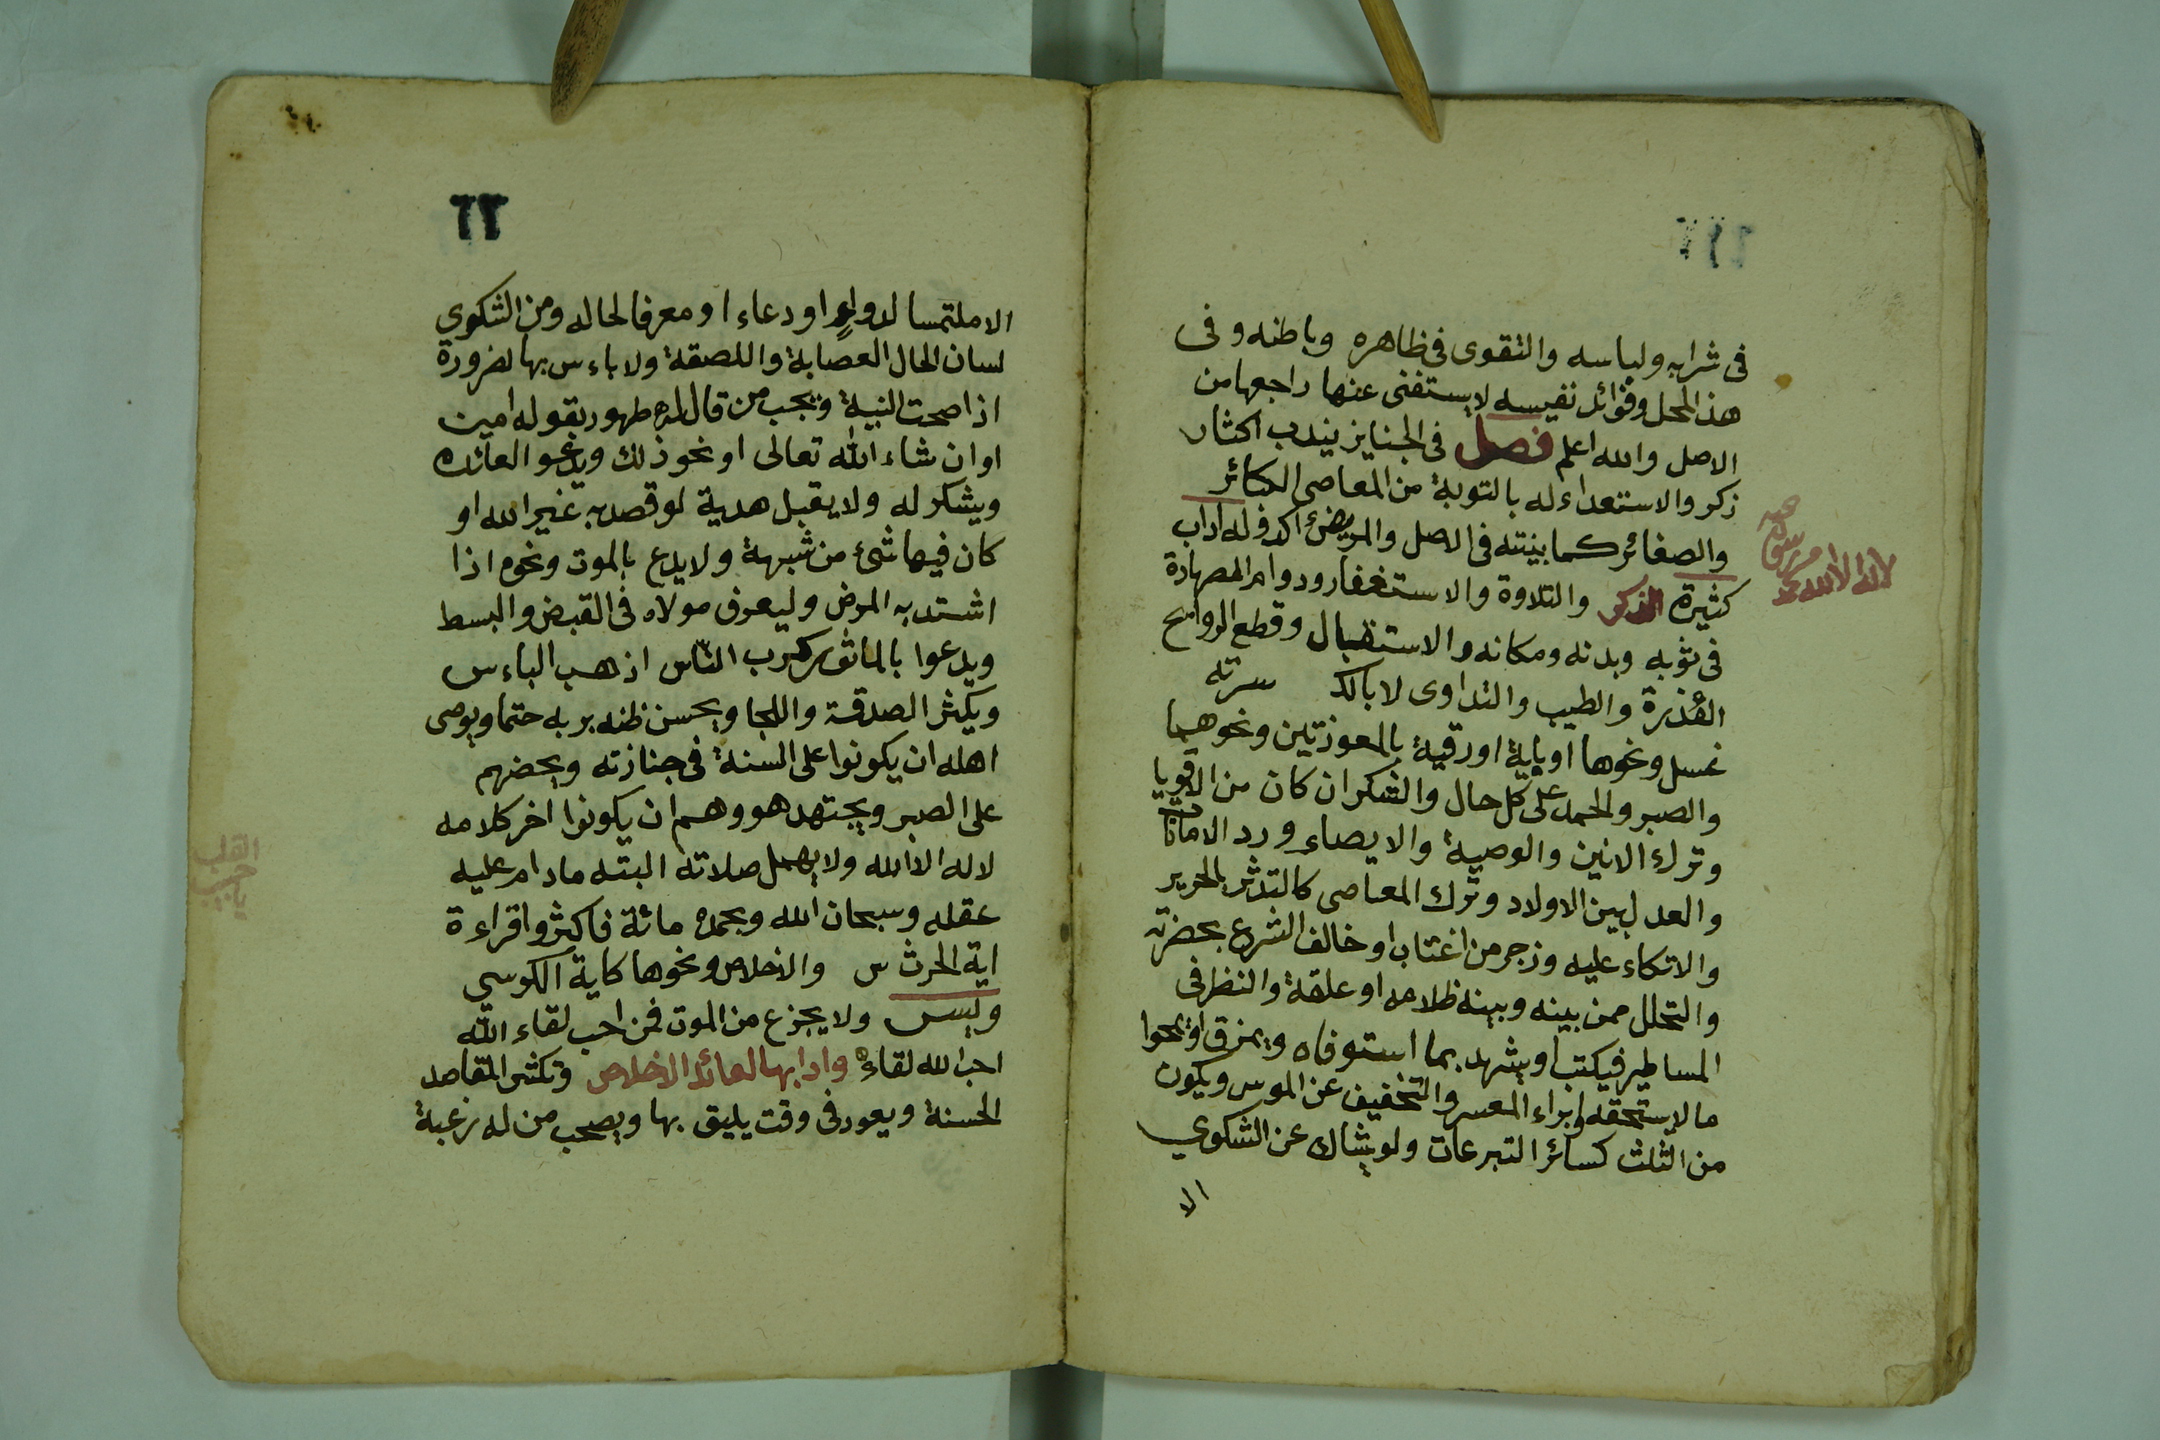 في شرابه ولباسه والتقوى في ظاهره وباطنه وفى
هذ المحل وفوائد نفيسه لا يستغنى عنها راجعها من
الاصل والله اعلم فصل في الجنايز يندب اكثار
ذكر والاستعداء له بالتوبة من المعاصي الكبائر
والصغائر كما بينته في الاصل والمريض اكد وله اداب
كثيرة الذكر والتلاوة والاستغفار ودوام الطهارة
في ثوبه وبدنه ومكانه والاستقبال وقطع الروايح
القذرة والطيب والتداوى لا بالكد سرته
غسل ونحوها اوباية اورقية بالمعوذتين ونحوهما
والصبر والحمد على كل حال والشكر ان كان من الاقويا
وترك الانين والوصية والايصاء ورد الامانات
والعدل بين الاولاد وترك المعاصي كالتدثر بالحرير
والاتكاء عليه وزجر من اغتاب او خالف الشرع بحضرته
والتحلل ممن بينه وبينه ظلامه او علقة والنظر في
المساطير فيكتب او يشهد بما استوفاه ويمزق او يمحوا
ما لا يستحقه وابراء المعسر والتخفيف عن الموسر ويكون
من الثلث كسائر التبرعات ولو يشاك عن الشكوي
الا
لا اله الا الله محمد رسول الله
٦٦
الا ملتمسا لدواء او دعاء او معرفا لحاله ومن الشكوي
لسان الحال العصابة واللصقة ولا باءس بها لضرورة
اذا صحت النية ويجب من قال له طهور بقوله امين
او ان شاء الله تعالى او نحو ذلك ويدعو العائده
ويشكر له ولا يقبل هدية لو قصد به غير الله او
كان فيها شئ من شبهة ولا يدع بالموت ونحوه اذا
اشتد به المرض وليعرف مولاه في القبض والبسط
ويدعوا بالماثور كرب الناس اذهب الباءس
ويكثر الصدقة واللجا ويحسن ظنه بربه حتما ويوصى
اهله ان يكونوا على السنة في جنازته ويحضهم
على الصبر ويجتهد هو وهم ان يكونوا اخر كلامه
لا له الا الله ولا يهمل صلاته البته مادام عليه
عقله وسبحان الله وبحمده مائة فاكثر واقراءة
اية الحرث س والاخلاص ونحوها كاية الكوسي
ويس ولا يجزع من الموت فمن احب لقاء الله
احب الله لقاءه وادابها لعائد الاخلاص وتكثير المقاصد
الحسنة ويعود في وقت يليق بها ويصحب من له رغبة